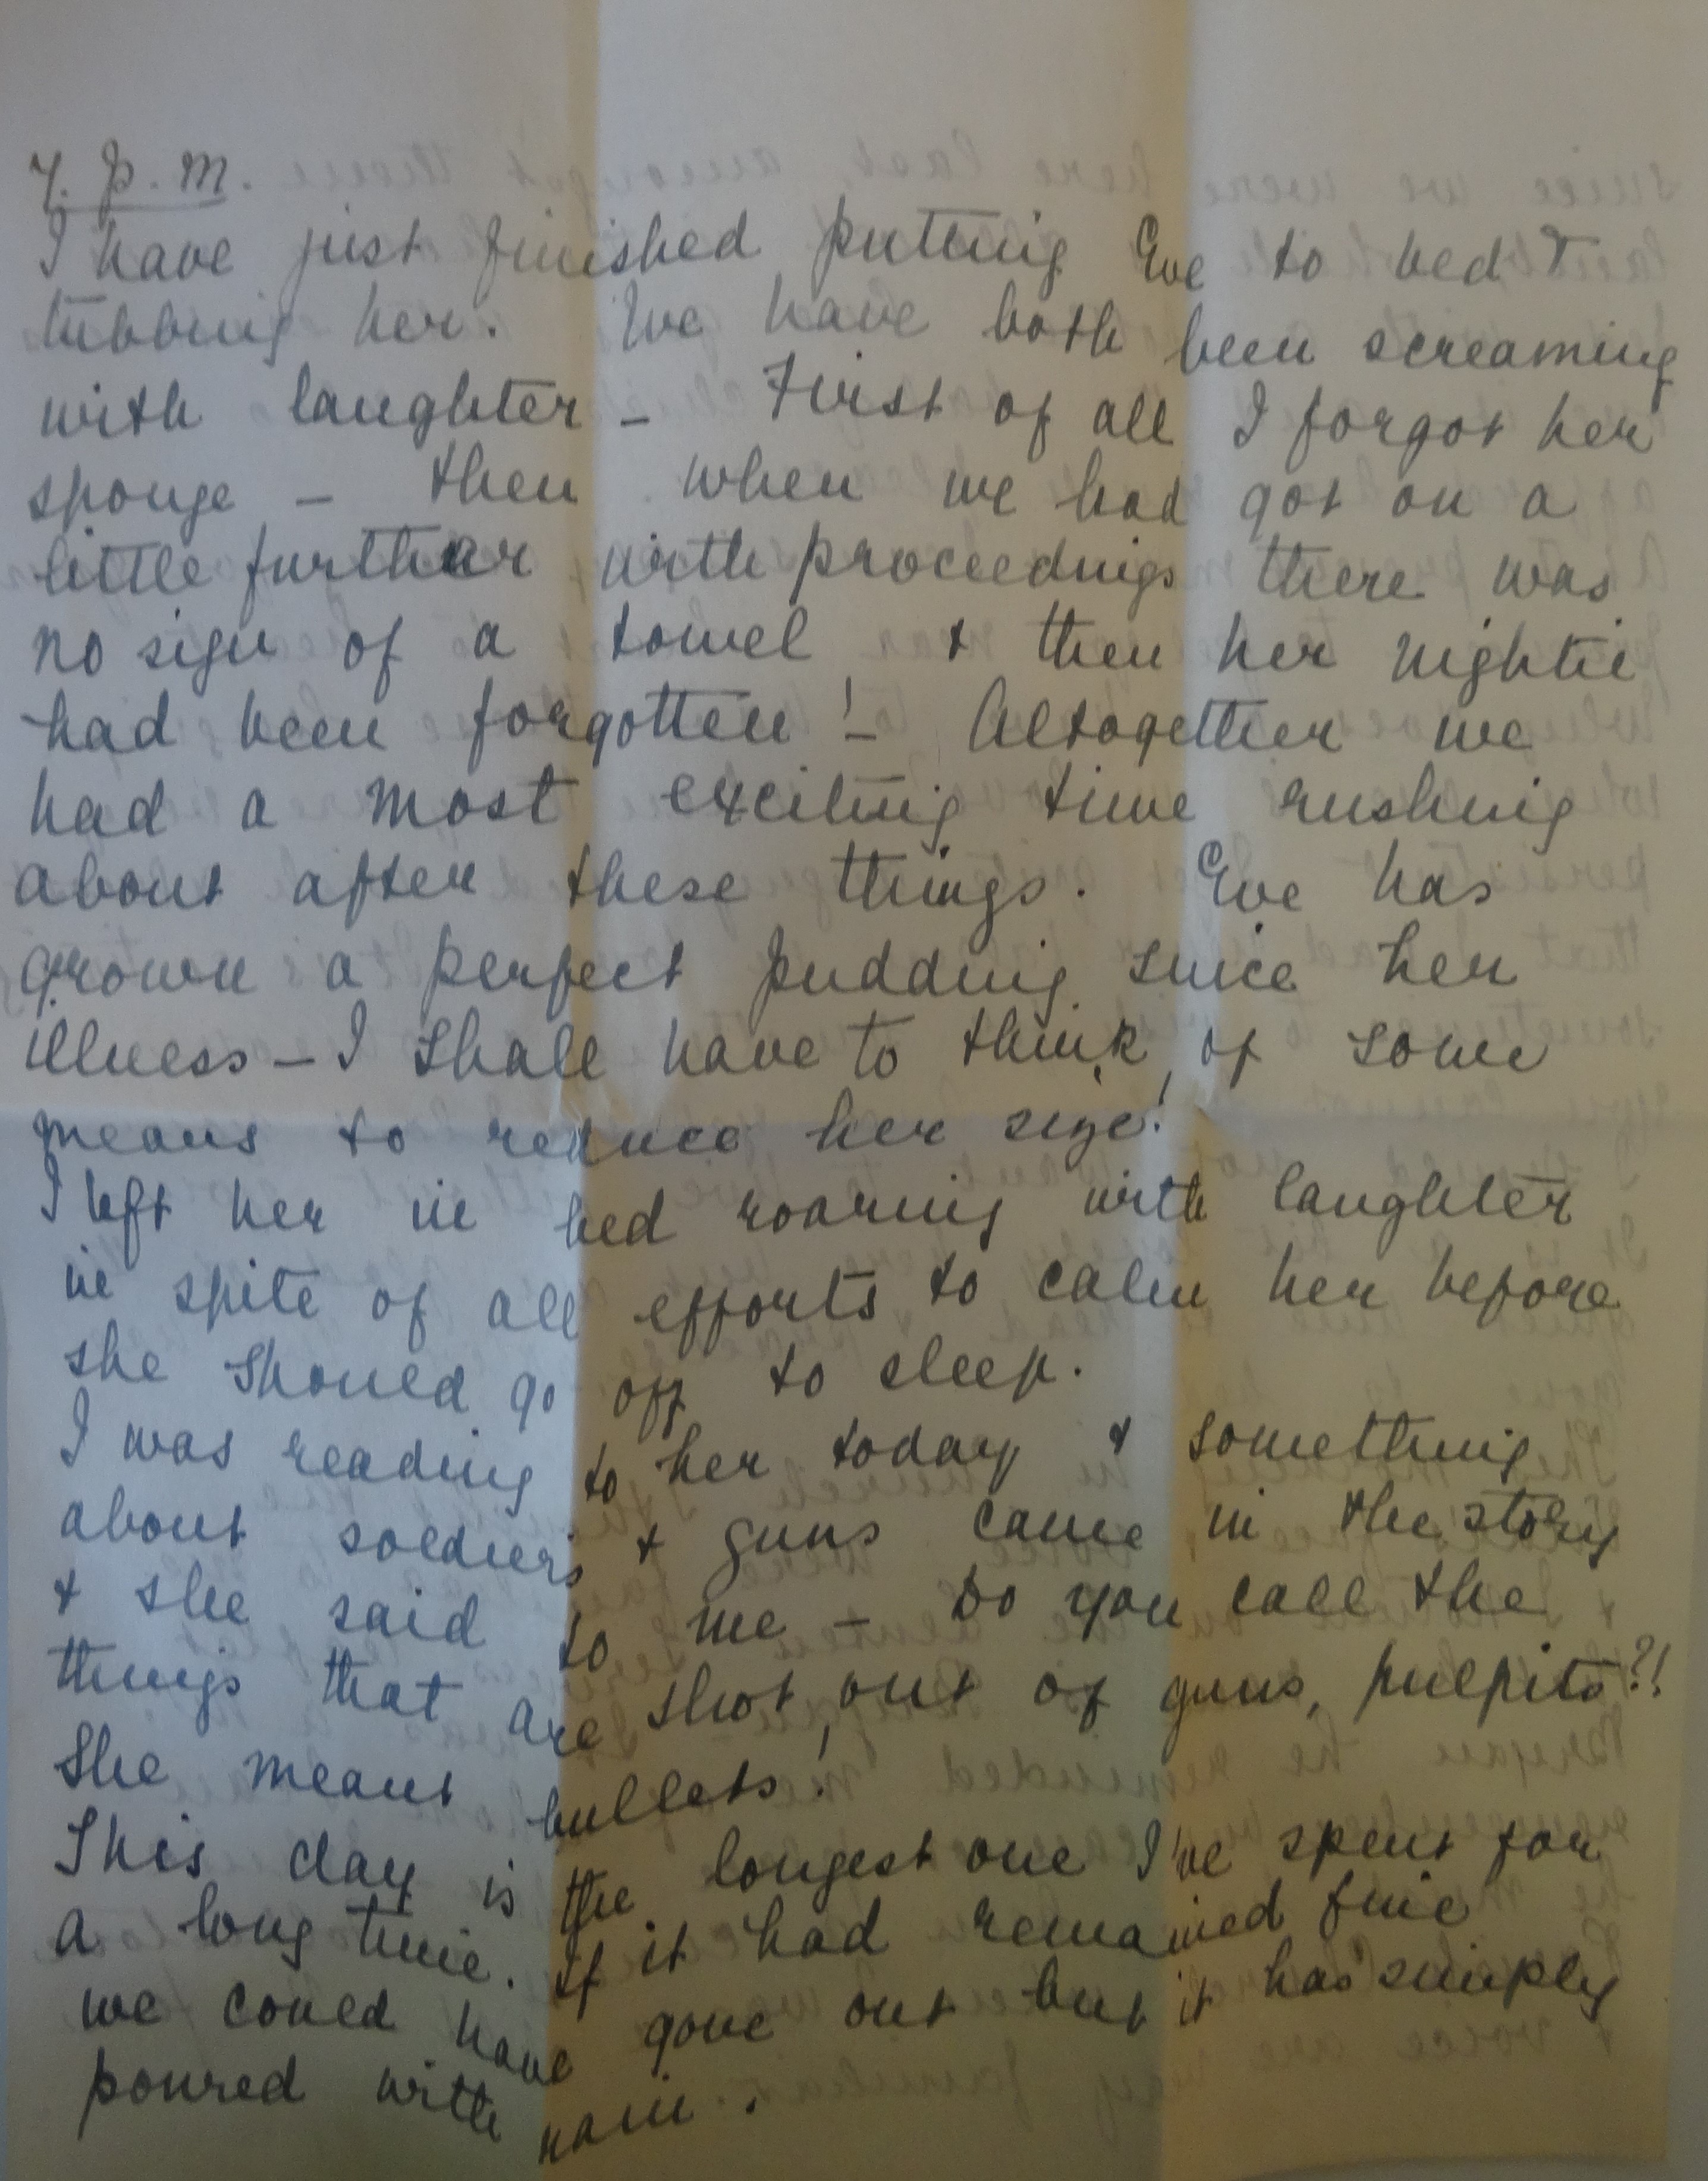 7. p.m.
I have just finished putting Eve to bed &
tubbing her. We have both been screaming
with laughter – First of all I forgot her
sponge – then when we had got on a
little further with proceedings there was
no sign of a towel & then her nightie
had been forgotten! – Altogether we
had a most exciting time rushing
about after these things. Eve has
grown a perfect pudding since her
illness – I shall have to think of some
means to reduce her size!
I left her in bed roaring with laughter
in spite of all efforts to calm her before
she should go off to sleep.
I was reading to her today & something
about soldiers & guns came in the story
& she said to me – Do you call the
things that are shot out of guns, pulpits?!
She meant bullets!
This day is the longest one I've spent for
a long time. If it had remained fine
we could have gone out but it has simply
poured with rain.